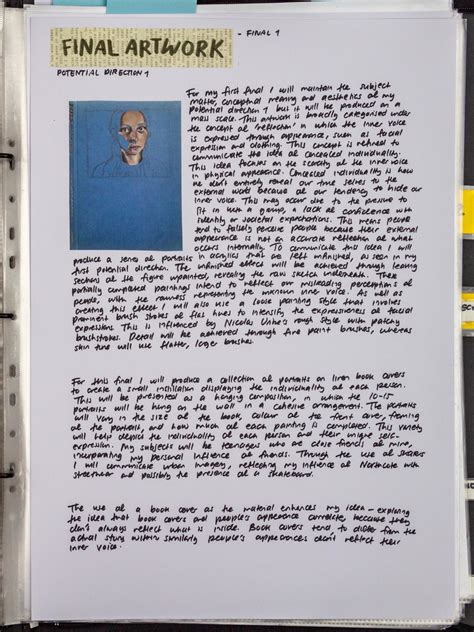 FINAL ARTWORK
- FINAL 1
POTENTIAL DIRECTION 1
For my first final I will maintain the subject
matter, conceptual meaning and aesthetics of my
potential direction 1 but it will be produced on a
mass scale. This artwork is broadly categorised under
the concept of 'reflection' in which the inner voice
is expressed through appearance, such as facial
expression and clothing. This concept is refined to
communicate the idea of concealed individuality.
This idea focuses on the scarcity of the inner voice
in physical appearance. Concealed individuality is how
we don't entirely reveal our true selves to the
external world because of our tendency to hide our
inner voice. This may occur due to the pressure to
fit in with a group, a lack of confidence with
identity or societies expectations. This means people
tend to falsely perceive people because their external
appearance is not an accurate reflection of what
occurs internally. To communicate this idea I will
produce a series of portraits in acrylics that are left unfinished, as seen in my
first potential direction. The unfinished effect will be achieved through leaving
sections of the figure unpainted, revealing the raw sketch underneath. These
partially completed paintings intend to reflect our misleading perceptions of
people, with the rawness representing the unknown inner voice. As well as
creating this effect I will also use a loose painting style that involves
prominent brush strokes of flat hues to intensify the expressiveness of facial
expressions. This is influenced by Nicolas Uribe's rough style with patchy
brushstrokes. Detail will be achieved through fine paint brushes, whereas
skin tone will use flatter, larger brushes.
For this final I will produce a collection of portraits on linen book covers
to create a small instillation displaying the individuality of each person.
This will be presented as a hanging composition, in which the 10-15
portraits will be hung on the wall in a cohesive arrangement. The portraits
will vary in the size of the book, colour of the front cover, framing
of the portrait, and how much of each painting is completed. This variety
will help depict the individuality of each person and their unique self-
expression. My subjects will be teenagers who are close friends of mine,
incorporating my personal influence of friends. Through the use of
I will communicate urban imagery, reflecting my influence of Northcote with
streetwear and possibly the presence of a skateboard.
The use of a book cover as the material enhances my idea - exploring
the idea that book covers and people's appearance correlate, because they
don't always reflect what is inside. Book covers tend to differ from the
actual story within similarly people's appearances don't reflect their
inner voice.